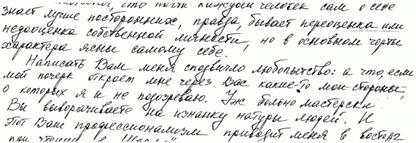 что почти каждый человек сам о себе
знает лучше посторонних, правда, бывает переоценка или
недооценка собственной личности, но в основном черты
характера ясны самому себе.
Написать Вам меня сподвигло любопытство: а что если
мой почерк откроет мне через Вас какие-то мои стороны,
о которых я и не подозреваю. Уж больно мастерски
Вы выворачиваете на изнанку натуры людей. И
этот Ваш профессионализм приводит меня в восторг
при чтении